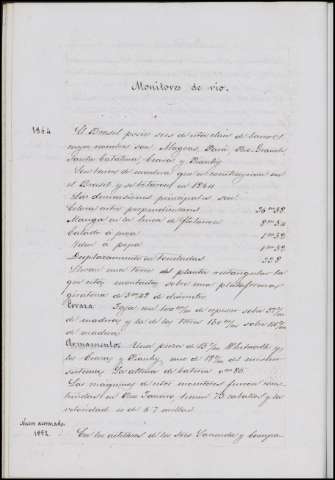 Monitores de rio.
1864
El Brasil posee seis de esta clase de barcos
cuyos nombres son Alagoas Pará Rio-Grande
Santa Catalina Ceará y Piauhy
Son barcos de madera que se construyeron en
el Brasil y se botaron en 1864
Las dimensiones principales son
Eslora entre perpendiculares 36m58
Manga en la linea de flotacion 8m54
Calado á proa 1m52
Idem á popa 1m52
Desplazamiento en toneladas 328
Llevan una torre de planta rectangular la
que está montada sobre una plataforma
giratoria de de diametro
Coraza: Faja en m/m de espesor sobre m/m
de madera y la de las torres m/m sobre m/m
de madera
Armamento: Una pieza de Whitworth y
los Ceará y Piauhy, una de del mismo
sistema. Altura de bateria 0m86.
Las maquinas de estos monitores fueron cons-
truidas en Rio Janeiro, tienen 75 caballos y la
velocidad es de 6 7 millas
Nuevo acorazado
1892.
En los astilleros de los Sres Samuda y Compa-